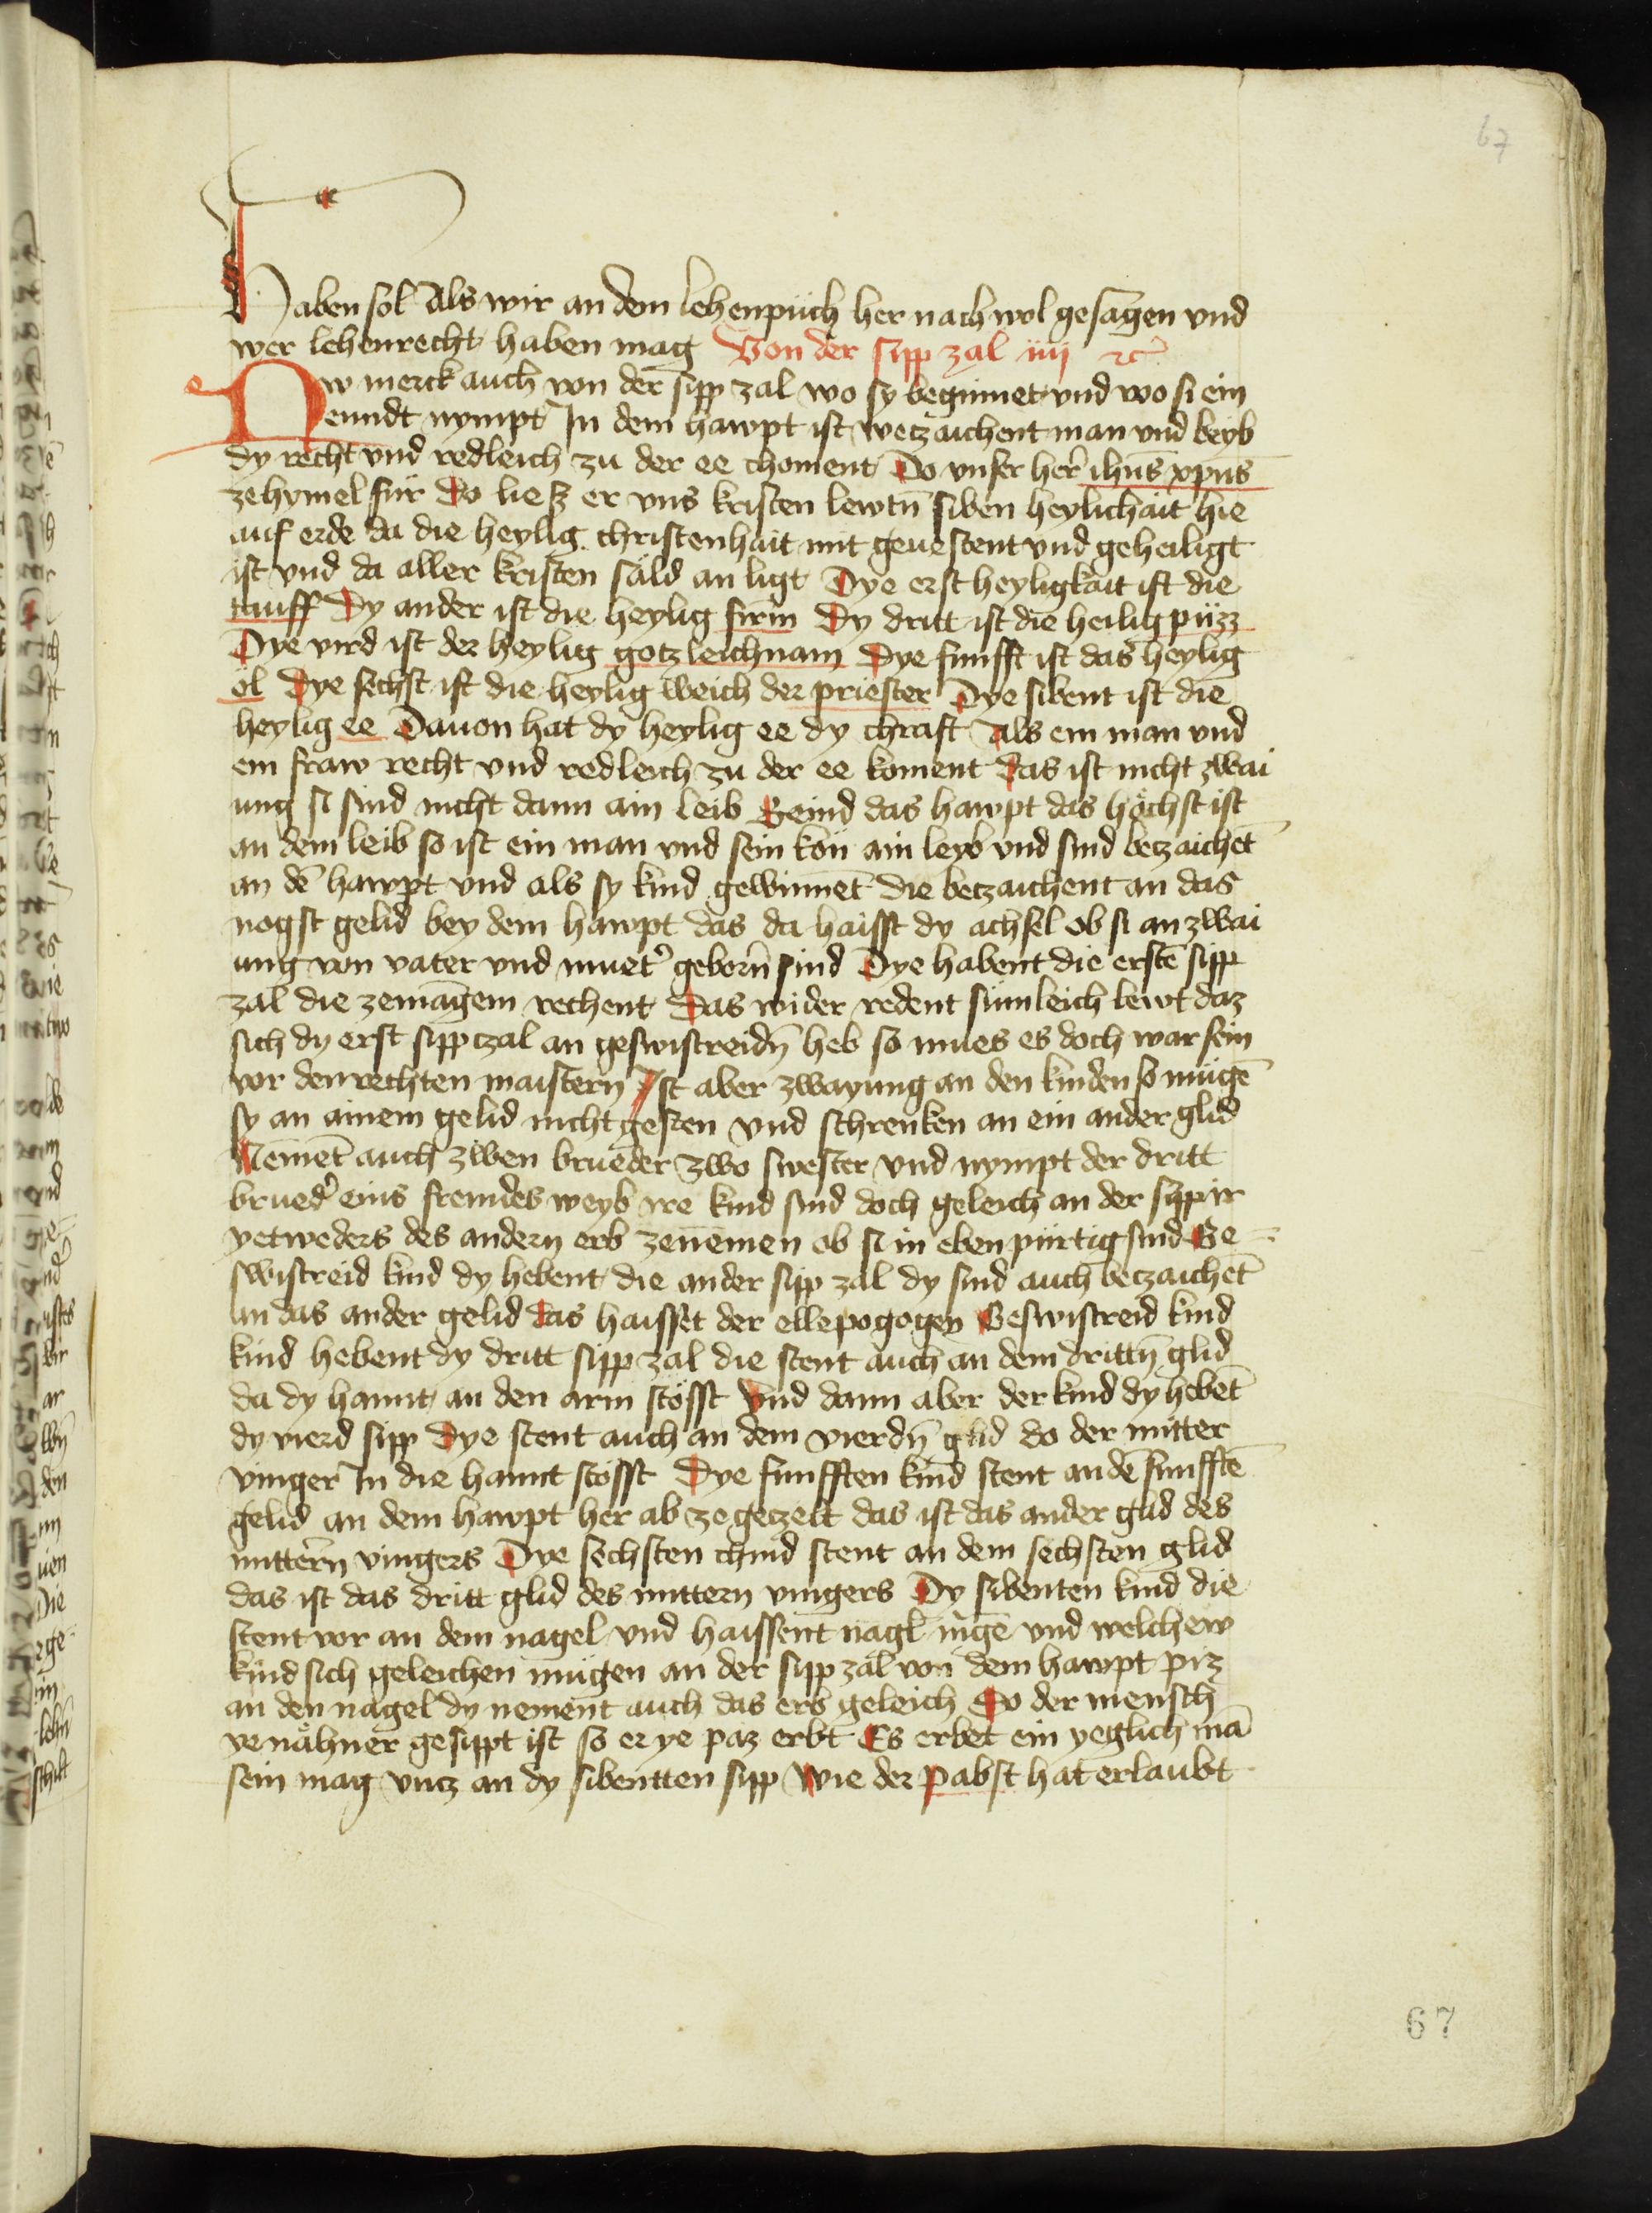 67
Haben sol Als wir an dem lehenpuch her nach wol gesagen vnd
wer lehenrecht haben mag Von der sipp zal iiij ⁊c̄
Nw merck auch von der sipp zal wo sy beginnet vnd wo si ein
enndt nympt In dem hawpt ist wetzaichent man vnd beyb
dy recht vnd redleich zu der ee choment Do vnser her̄ ihūs xpūs
ze hymel fur Do liesz er vns kristen lewtn̄ siben heylichait hie
auf erde da die heylig christenhait mit geuestent vnd geheiligt
ist vnd da aller kristen säld an ligt Dye erst heyligkait ist die
tauff Dy ander ist die heylig firm Dy dritt ist die heilig püzz
Dye vird ist der heylig gotzleichnam Dye funfft ist das heylig
ol Dye sechst ist die heylig weich der priester Dye sibent ist die
heylig ee Dauon hat dy heylig ee dy chraft Als ein man vnd
ein fraw recht vnd redleich zu der ee koment das ist nicht zwai
ung si sind nicht dann ain leib Seind das hawpt das höchst ist
an dem leib so ist ein man vnd sein kon ain leyb vnd sind betzaichet̄
an dē hawpt vnd als sy kind gewinnet die betzaichent an das
nogst gelid bey dem hawpt das da haisst dy achsel ob si an zwai
ung von vater vnd muet᾽ geborn̄ sind Dye habent die erste sipp
zal die ze magem rechent Das wider redent sümleich lewt daz
sich dy erst sippczal an geswistreidn̄ heb so mues es doch war sein
vor den rechten maistern Ist aber zwayung an den kinden so mügē
sy an ainem gelid nicht gesten vnd schrenken an ein ander glid
Nemet̄ auch zwen brueder zwo swester vnd nympt der dritt
brued᾽ eins fremdes weyb ire kind sind doch geleich an der sipp ir
yetweders des andern erb ze nemen ob si in eben pürtig sind Ge-
swistreid kind dy hebent die ander sipp zal dy sind auch betzaichet̄
an das ander gelid das haisset der ellepogogen Geswistreid kind
kind hebent dy dritt sipp zal die stent auch an dem drittn̄ glid
da dy hannt an den arm stösst Vnd dann aber der kind dy hebet̄
dy vierd sipp Dye stent auch an dem vierdn̄ glid do der mitter
vinger In die hannt stösst Dye funfften kind stent an dē funfftē
gelid an dem hawpt her ab ze getzelt das ist das ander glid des
mittern̄ vingers Dye sechsten chind stent an dem sechsten glid
das ist das dritt glid des mittern vingers Dy sibenten kind die
stent vor an dem nagel vnd haissent nagl mgē vnd welchew
kind sich geleichen mügen an der sipp zal von dem hawpt piz
an den nagel dy nement auch das erb geleich So der mensch
ye nähner gesippt ist so er ye paz erbt Es erbet ein yeglich mā
sein mag vntz an dy sibentten sipp Wie der pabst hat erlaubt
67